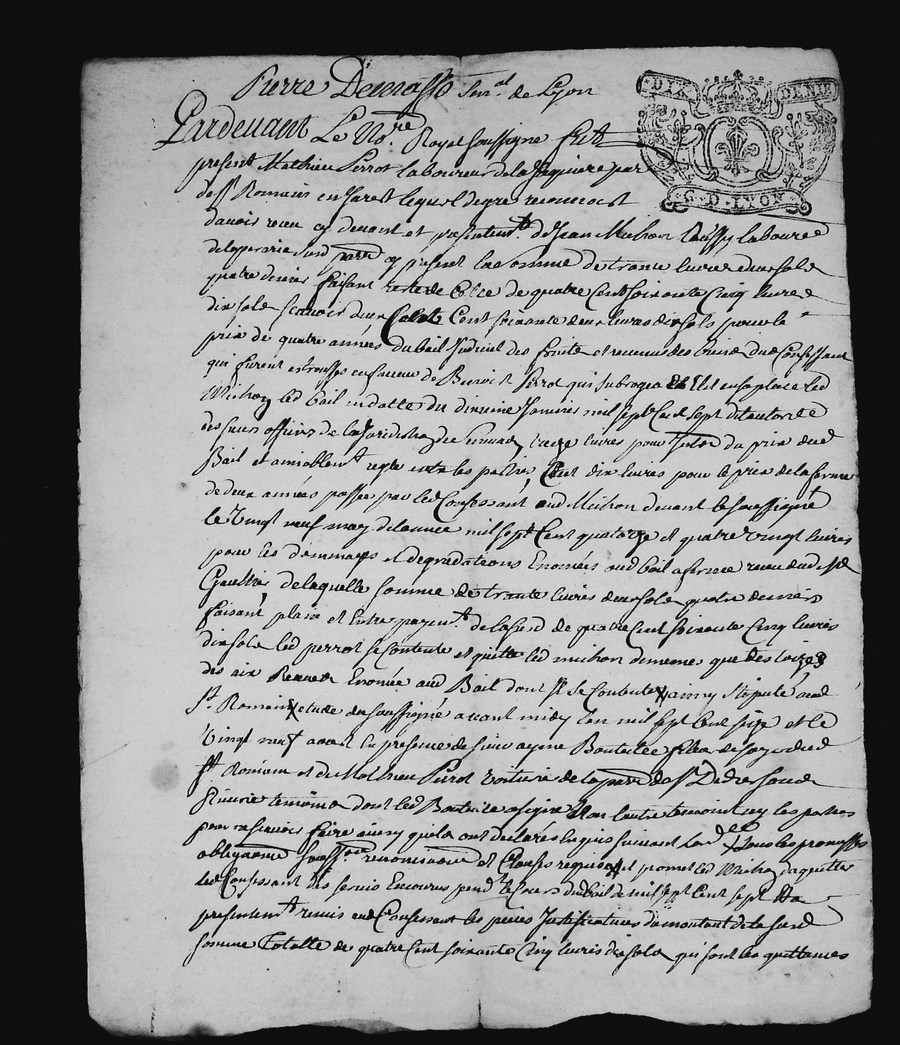 Pierre Demasso de Lyon
DIX DENI
G D LYON
Pardevant Le No.re Royal soussigne fut
present Mathieu Perrot Laboureur de la par
de st Romain en Jarest lequel de gre reconnoit
davoir receu cy devant et presentem.t de Jean Michon laboure
de par.e cy present la somme de trante livres deux sols
quatre deniers faisant reste de Celle de quatre Cent soixante Cinq livres
dix sols scavoir Cent soixante deux livres dix sols pour le
prix de quatre années du bail Judiciel des fruits et revenus des biens dud Confessant
qui furent en faveur de Benoist Perrot qui subrogea en sa place led
Michon led bail en datte du Janvier mil sept Cent sept de lautorite
des sieurs officiers de la Jurisdi.on treize livres pour du prix dud
Bail et amiablem.t regle entre les parties, Cent dix livres pour le prix de la ferme
de deux années passee par led Confessant aud Michon devant le soussigné
le vingt neuf may de lannee mil sept Cent quatorze et quatre vingt livres
pour les dommages et degradations Enoncées aud bail a ferme receu dud
de laquelle somme de trante livres deux sols quatre deniers
faisant plain et Entier payem.t de la sud de quatre Cent soixante Cinq livres
dix sols led perrot se Contente et quitte led michon de mesme que des
des Enoncée aud Bail dont Il se Contente ainsy stipulé aud
st. Romain etude du soussigné avant midy Lan mil sept Cent seize et le
vingt neuf aoust En presence de sieur
st Romain et de Mathieu Perrot voiturier de la par.e de st.
temoins dont led a signe Non lautre temoin ny les parties
pour ne scavoir faire ainsy quils ont declarés Enquis suivant Lord.ce sous les promesses
obligaoons renonciaoons et Clauses requises et promet led Michon daquitter
led Confessant des servis Encourus pend.t le Cours du bail de mil sept Cent sept
presentem.t remis aud Confessant les pieces Justificatives du montant de la sud
somme totalle de quatre Cent soixante Cinq livres dix sols qui sont les quittances